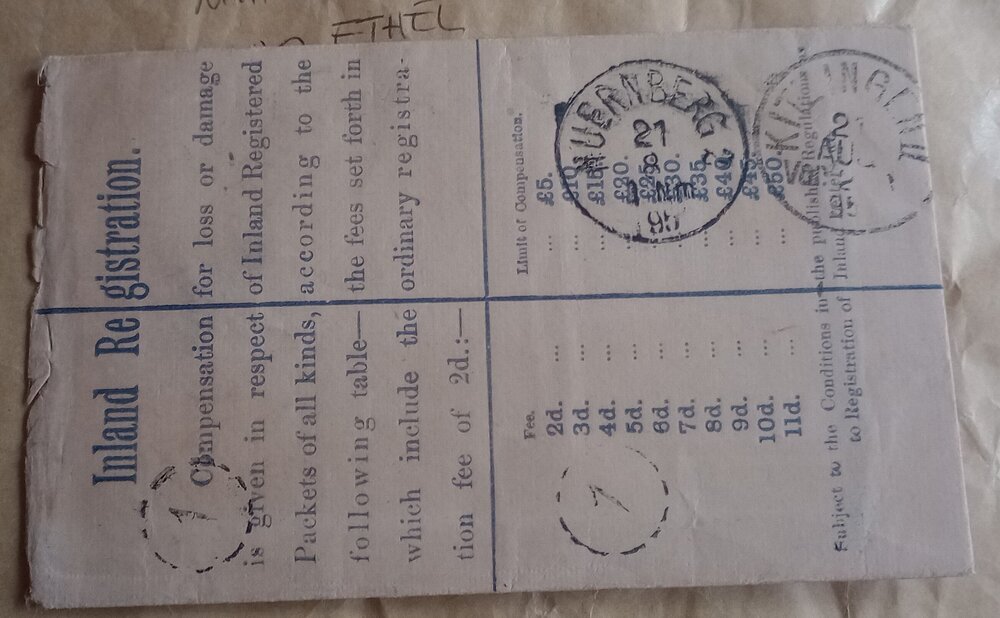 ETHEL
Inland Registration.
Compensation for loss or damage
is given in respect of Inland Registered
Packets of all kinds, according to the
following table— the fees set forth in
which include the ordinary registra-
tion fee of 2d.:—
Fee. Limit of Compensation.
2d. ... £5.
3d. ... £10.
4d. ... £15.
5d. ... £20.
6d. ... £25.
7d. ... £30.
8d. ... £35.
9d. ... £40.
10d. ... £45.
11d. ... £50.
Subject to the Conditions in the Published Regulations as
to Registration of Inland
NUERNBERG
21
95
1
7